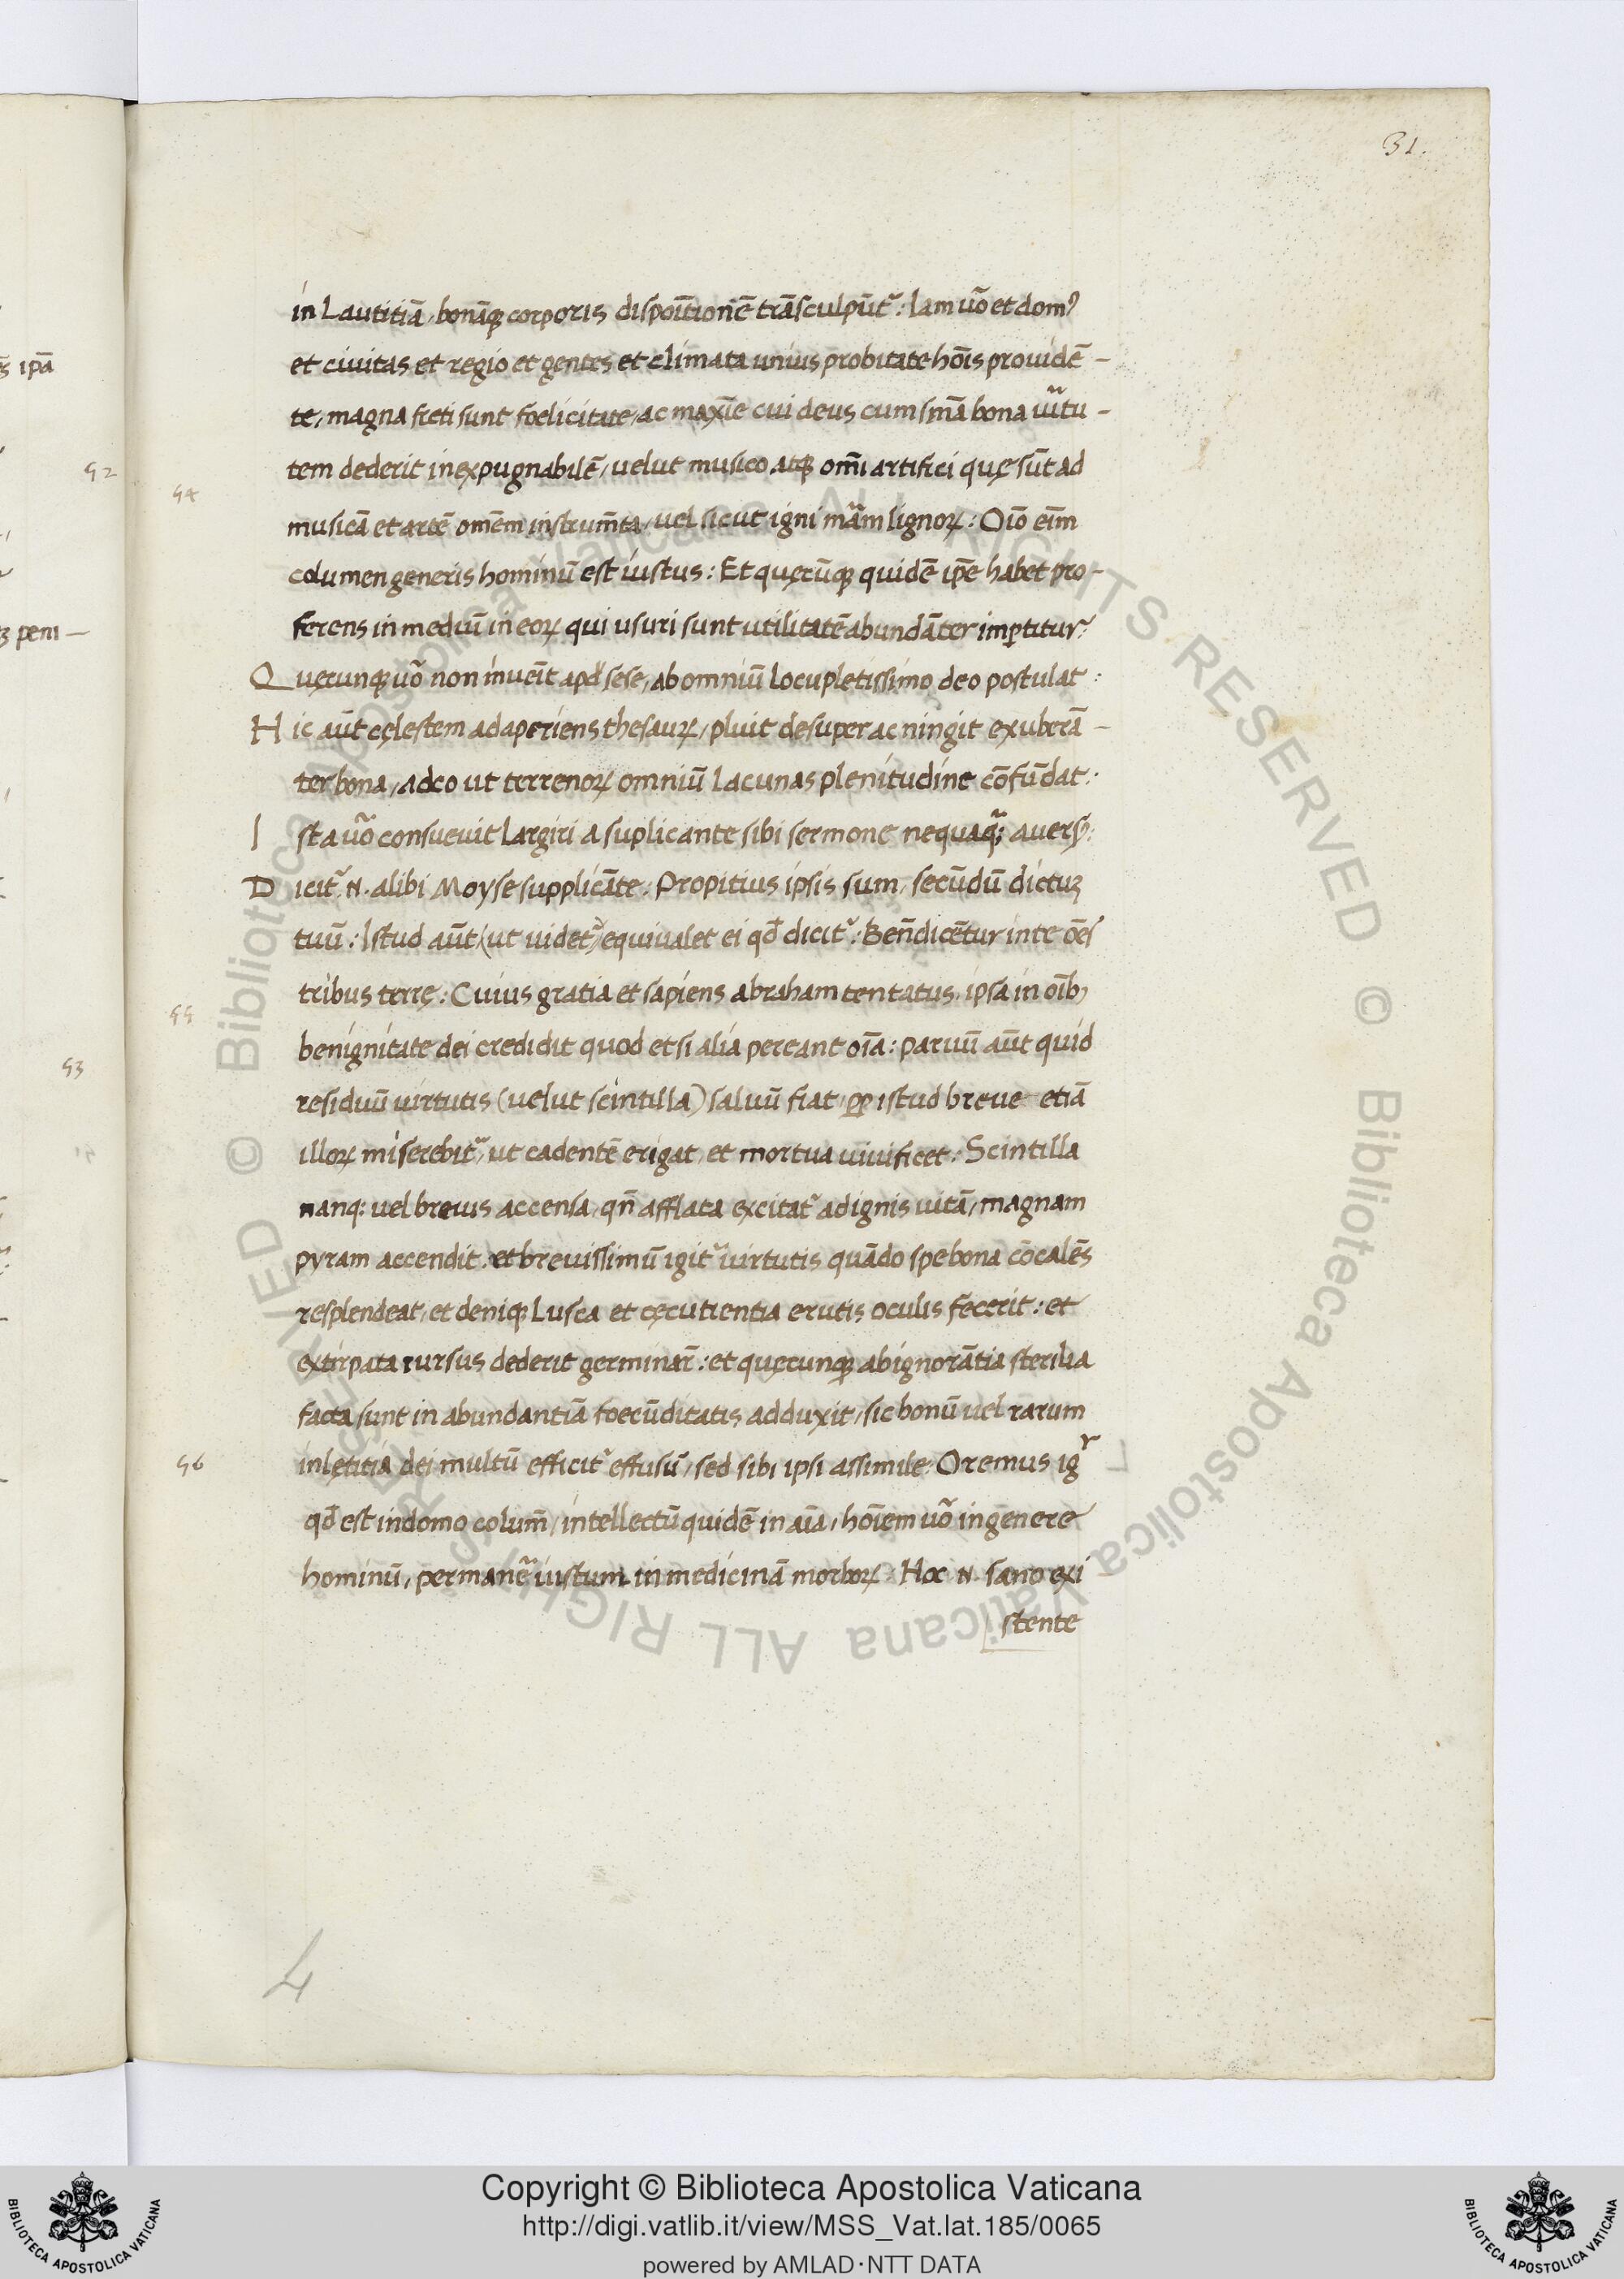 31.
in Lautitiā, bonāq; corporis dispoītionē trāsculpūt᷑ : Iam u᷑o et domꝰ
et civitas et regio et gentes et climata unius probitate hoīs prouidē-
te, magna freti sunt foelicitate, ac maxīe cui deus cum sm̄a bona uirtu-
tem dederit inexpugnabilē, uelut musico atq; om̄i artifici quę sūt ad
musicā et artē omēm instrum̄ta, uel sicut igni mām lignoꝝ : Oīo eīm
columen generis hominū est iustus : Et quęcūq; quidē ip̄e habet pro-
ferens in mediū in eoꝝ qui usuri sunt utilitatē abundāter imꝑtitur :
Quęcunq; uo᷑ non inueīt apd̓ sese, ab omniū locupletissimo deo postulat :
Hic aūt cęlestem adaperiens thesauꝝ, pluit desuper ac ningit exuberā-
ter bona, adeo ut terrenoꝝ omniū lacunas plenitudine cōfūdat :
Ista uo᷑ consueuit largiri a suplicante sibi sermone nequaq᷑; auersꝰ :
Dicit᷑ .N. alibi Moyse supplicāte : Propitius ipsis sum, secūdū dictuꝫ
tuū : Istud aūt (ut uidet᷑) equivalet ei qđ dicit᷑ : Beñdicētur in te oēs
tribus terrę : Cuius gratia et sapiens abraham tentatus, ipsa in oībꝫ
benignitate dei credidit quod etsi alia pereant oīa : paruū aūt quid
residuū uirtutis (uelut scintilla) saluū fiat, ꝓꝑ istud breue etiā
illoꝝ miserebit᷑, ut cadentē erigat, et mortua uiuificet : Scintilla
nanq: uel breuis accensa, qn̄ afflata excitat᷑ ad ignis uitā, magnam
pyram accendit : et breuissimū igit᷑ uirtutis quādo spe bona cōcalēs
resplendeat, et deniq; lusca et cęcutientia erutis oculis fecerit : et
extirpata rursus dederit germinar̄ : et quęcunq; ab ignorātia sterilia
facta sunt in abundantiā foecūditatis adduxit, sic bonū uel rarum
in lętitia dei multū efficit᷑ effusū, sed sibi ipsi assimile : Oremus igr
qđ est in domo colum̄, intellectū quidē in aīa, hoīem uo᷑ in genere
hominū, permane᷑ iustum in medicinā morboꝝ : Hoc .N. sano exi
stente
54
55
56
4
52
53
s ipā
ꝫ peni-
© Biblioteca Apostolica Vaticana ALL RIGHTS RESERVED © Biblioteca Apostolica Vaticana ALL RIGHTS RESERVED
BIBLIOTECA APOSTOLICA VATICANA
Copyright © Biblioteca Apostolica Vaticana
http://digi.vatlib.it/view/MSS_Vat.lat.185/0065
powered by AMLAD·NTT DATA
BIBLIOTECA APOSTOLICA VATICANA